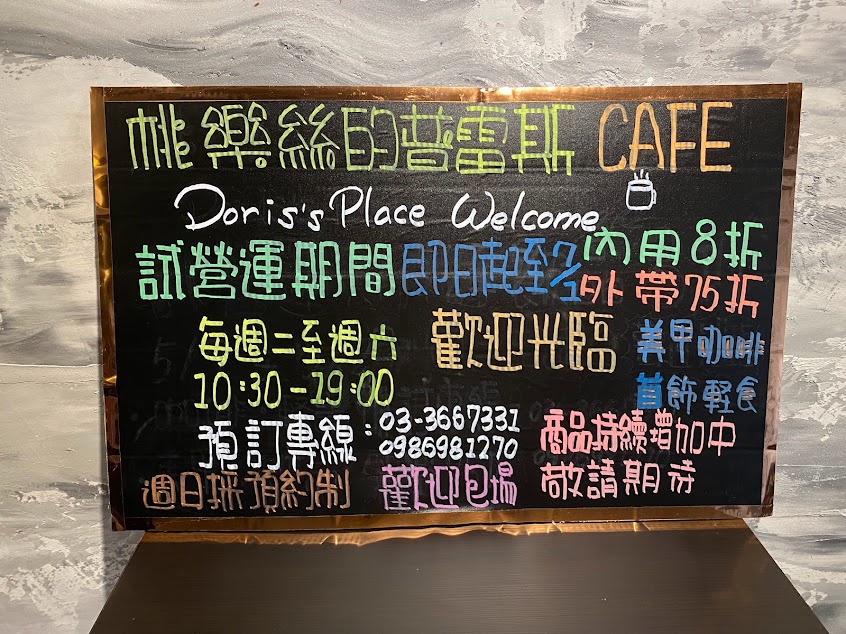 桃樂絲的普雷斯 CAFE
Doris's Place Welcome
試營運期間即日起至7/1
內用8折
外帶75折
每週二至週六
10:30-19:00
歡迎光臨
美甲咖啡
首飾輕食
預訂專線:03-3667331
0986981270
商品持續增加中
敬請期待
週日採預約制
歡迎包場